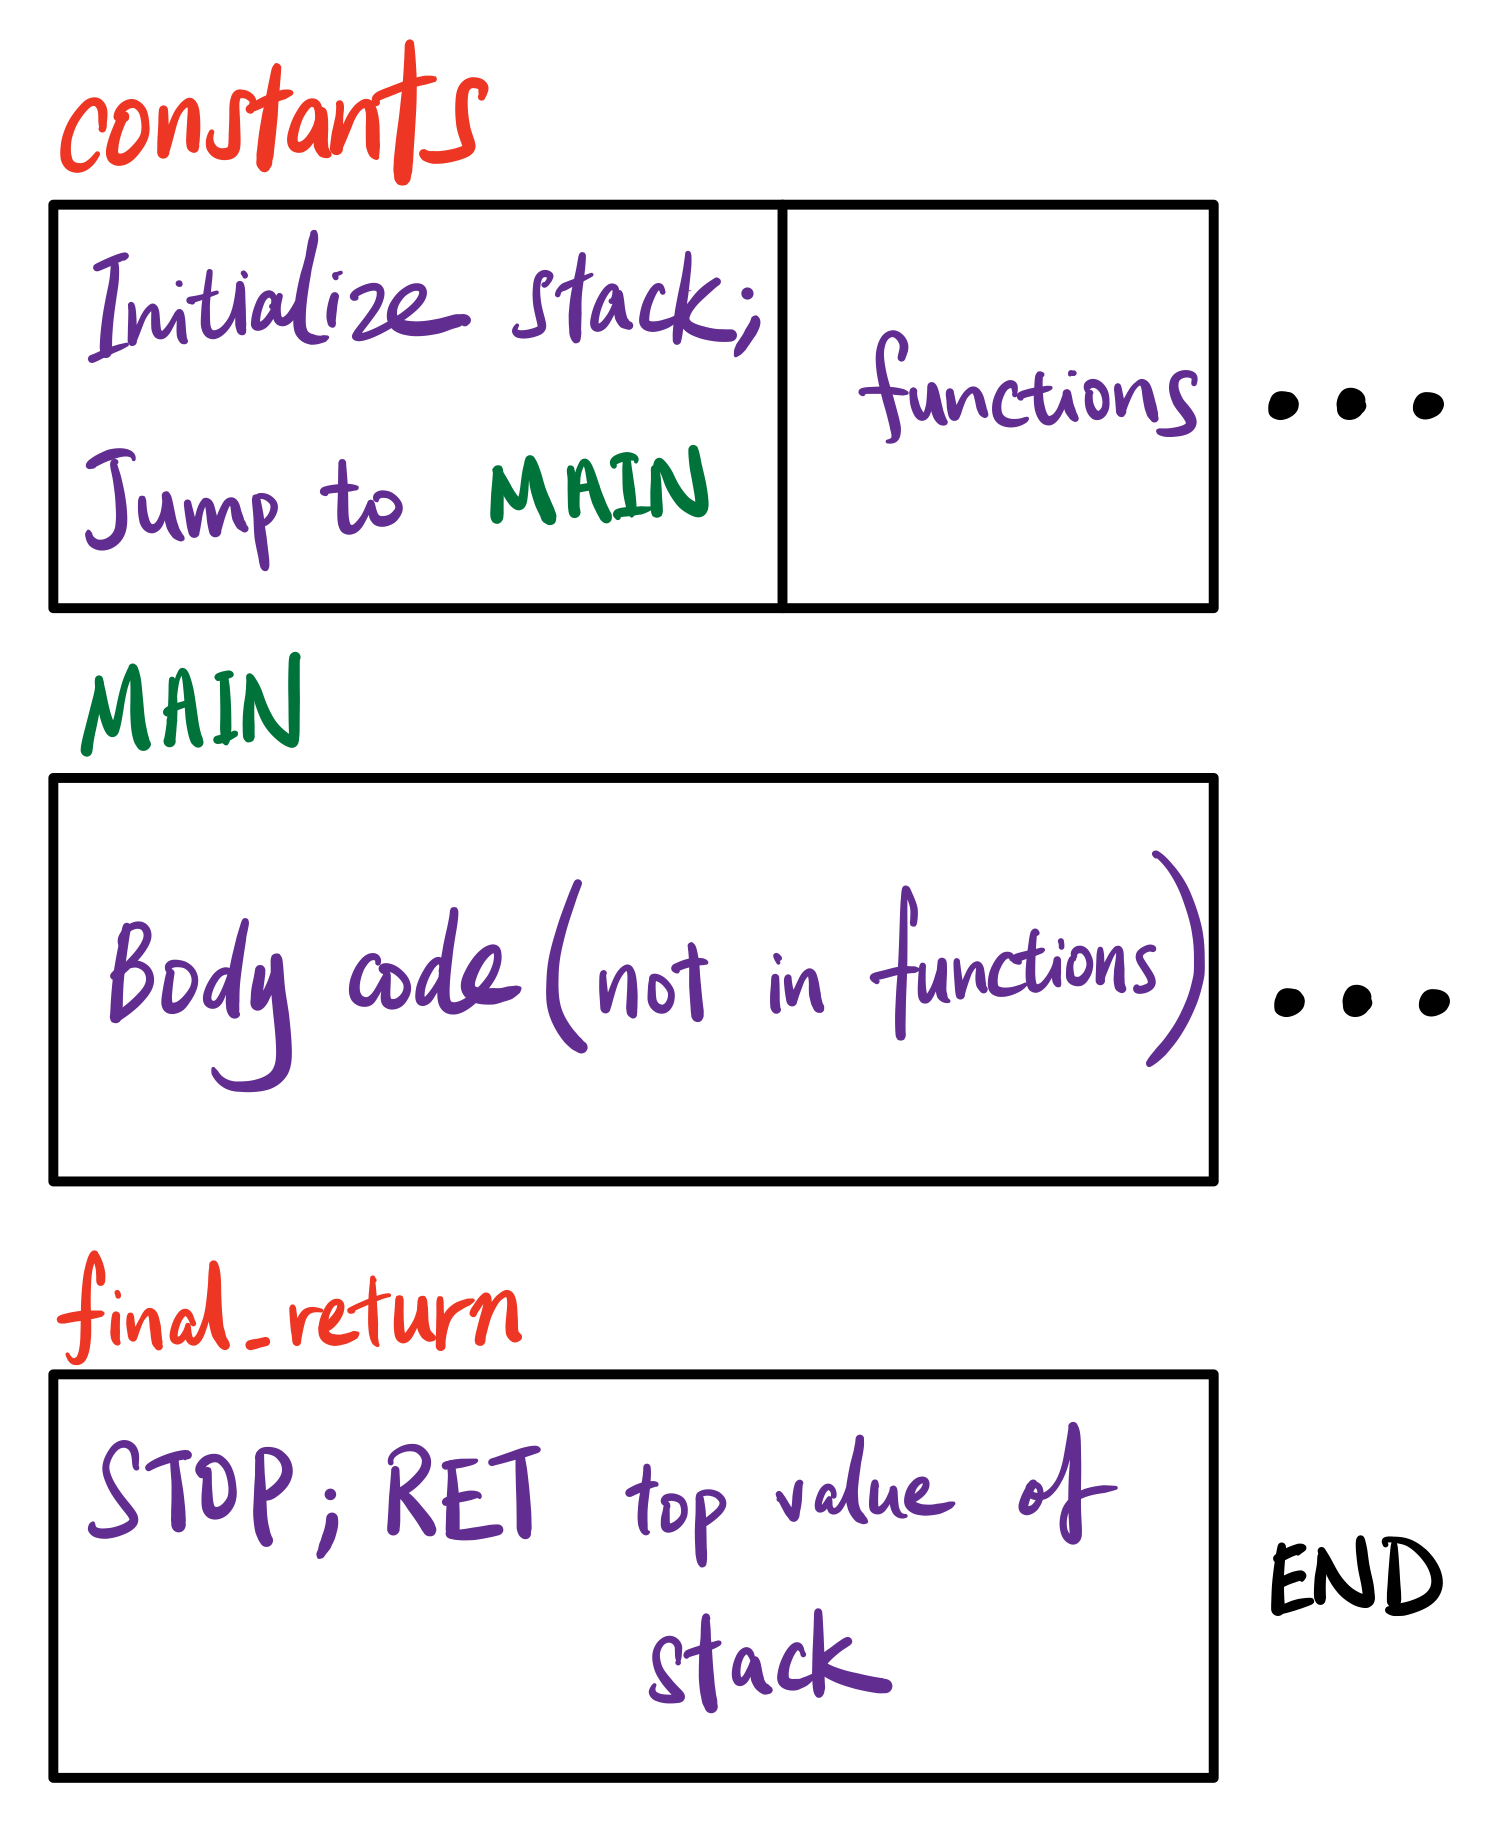 constants
Initialize stack;
Jump to MAIN
functions
...
MAIN
Body code (not in functions)
...
final_return
STOP; RET top value of
stack
END